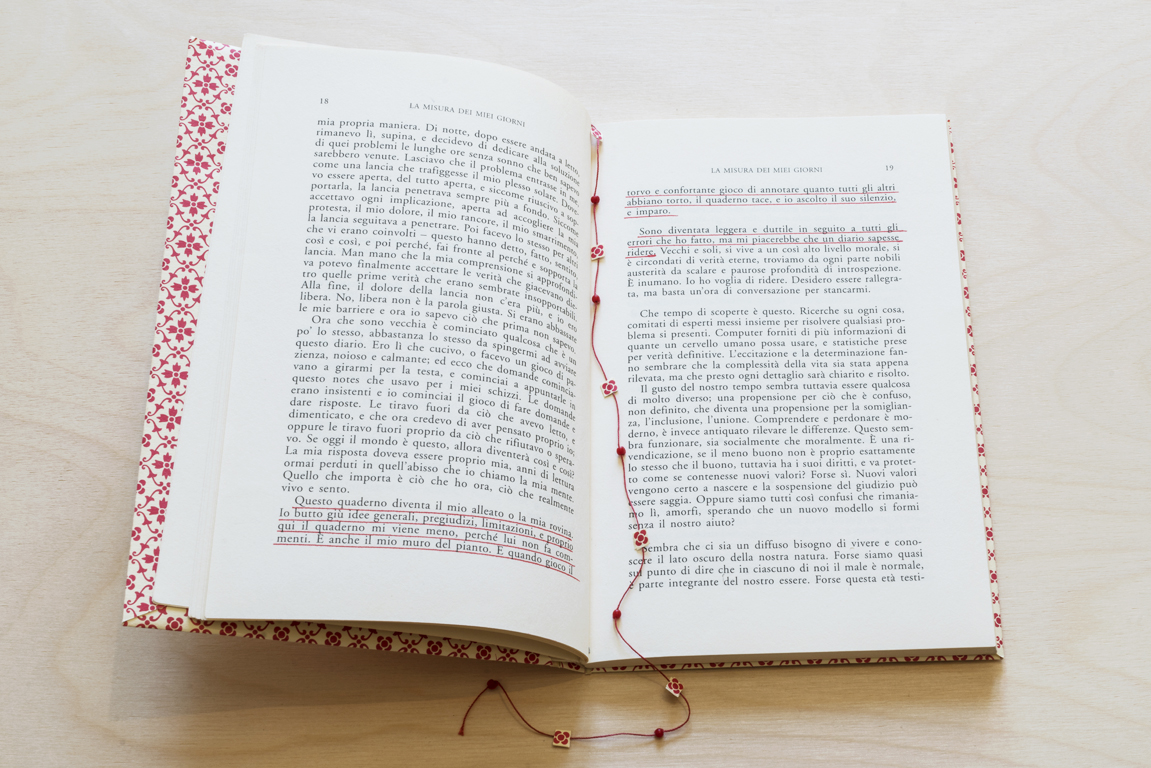 18
LA MISURA DEI MIEI GIORNI
mia propria maniera. Di notte, dopo essere andata a letto,
rimanevo lì, supina, e decidevo di dedicare alla soluzione
di quei problemi le lunghe ore senza sonno che ben sapevo
sarebbero venute. Lasciavo che il problema entrasse in me,
come una lancia che trafiggesse il mio plesso solare. Dove-
vo essere aperta, del tutto aperta, e siccome riuscivo a sop-
portarla, la lancia penetrava sempre più a fondo. Siccome
accettavo ogni implicazione, aperta ad accogliere la mia
protesta, il mio dolore, il mio rancore, il mio smarrimento,
la lancia seguitava a penetrare. Poi facevo lo stesso per altri
che vi erano coinvolti – queste hanno detto, fatto, sentito
così e così, e poi perché, fai fronte al perché e sopporta la
lancia. Man mano che la mia comprensione si approfondi-
va potevo finalmente accettare le verità che giacevano die-
tro quelle prime verità che erano sembrate insopportabili.
Alla fine, il dolore della lancia non c'era più, e io ero
libera. No, libera non è la parola giusta. Si erano abbassate
le mie barriere e ora io sapevo ciò che prima non sapevo.
Ora che sono vecchia è cominciato qualcosa che è un
po' lo stesso, abbastanza lo stesso da spingermi ad avviare
questo diario. Ero lì che cucivo, o facevo un gioco di pa-
zienza, noioso e calmante; ed ecco che domande comincia-
vano a girarmi per la testa, e cominciai a appuntarle in
questo notes che usavo per i miei schizzi. Le domande
erano insistenti e io cominciai il gioco di fare domande e
dare risposte. Le tiravo fuori da ciò che avevo letto, e
dimenticato, e che ora credevo di aver pensato proprio io;
oppure le tiravo fuori proprio da ciò che rifiutavo o spera-
vo. Se oggi il mondo è questo, allora diventerà così e così?
La mia risposta doveva essere proprio mia, anni di lettura
ormai perduti in quell'abisso che io chiamo la mia mente.
Quello che importa è ciò che ho ora, ciò che realmente
vivo e sento.
Questo quaderno diventa il mio alleato o la mia rovina.
Io butto giù idee generali, pregiudizi, limitazioni, e proprio
qui il quaderno mi viene meno, perché lui non fa com-
menti. È anche il mio muro del pianto. E quando gioco il
LA MISURA DEI MIEI GIORNI
19
torvo e confortante gioco di annotare quanto tutti gli altri
abbiano torto, il quaderno tace, e io ascolto il suo silenzio,
e imparo.
Sono diventata leggera e duttile in seguito a tutti gli
errori che ho fatto, ma mi piacerebbe che un diario sapesse
ridere. Vecchi e soli, si vive a un così alto livello morale, si
è circondati di verità eterne, troviamo da ogni parte nobili
austerità da scalare e paurose profondità di introspezione.
È inumano. Io ho voglia di ridere. Desidero essere rallegra-
ta, ma basta un'ora di conversazione per stancarmi.
Che tempo di scoperte è questo. Ricerche su ogni cosa,
comitati di esperti messi insieme per risolvere qualsiasi pro-
blema si presenti. Computer forniti di più informazioni di
quante un cervello umano possa usare, e statistiche prese
per verità definitive. L'eccitazione e la determinazione fan-
no sembrare che la complessità della vita sia stata appena
rilevata, ma che presto ogni dettaglio sarà chiarito e risolto.
Il gusto del nostro tempo sembra tuttavia essere qualcosa
di molto diverso; una propensione per ciò che è confuso,
non definito, che diventa una propensione per la somiglian-
za, l'inclusione, l'unione. Comprendere e perdonare è mo-
derno, è invece antiquato rilevare le differenze. Questo sem-
bra funzionare, sia socialmente che moralmente. È una ri-
vendicazione, se il meno buono non è proprio esattamente
lo stesso che il buono, tuttavia ha i suoi diritti, e va protet-
to come se contenesse nuovi valori? Forse sì. Nuovi valori
vengono certo a nascere e la sospensione del giudizio può
essere saggia. Oppure siamo tutti così confusi che rimania-
mo lì, amorfi, sperando che un nuovo modello si formi
senza il nostro aiuto?
Sembra che ci sia un diffuso bisogno di vivere e cono-
scere il lato oscuro della nostra natura. Forse siamo quasi
sul punto di dire che in ciascuno di noi il male è normale,
è parte integrante del nostro essere. Forse questa età testi-